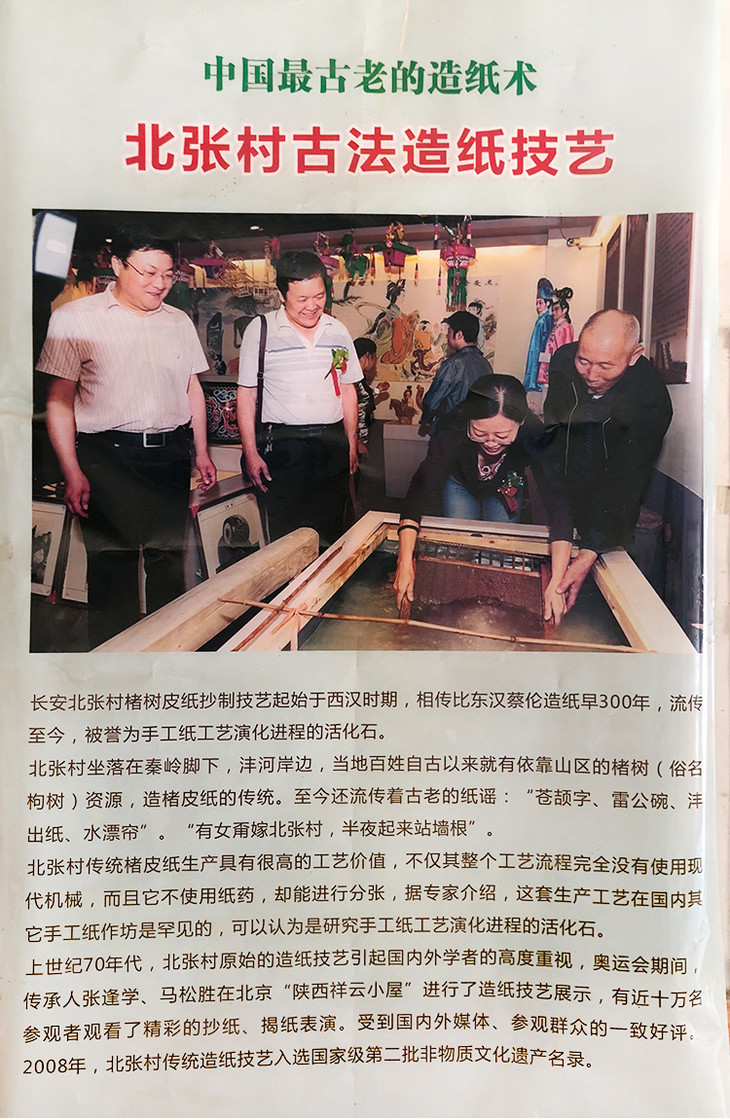 中国最古老的造纸术
北张村古法造纸技艺
长安北张村楮树皮纸抄制技艺起始于西汉时期，相传比东汉蔡伦造纸早300年，流传
至今，被誉为手工纸工艺演化进程的活化石。
北张村坐落在秦岭脚下，沣河岸边，当地百姓自古以来就有依靠山区的楮树（俗名
枸树）资源，造楮皮纸的传统。至今还流传着古老的纸谣：“苍颉字、雷公碗、沣
出纸、水漂帘”。“有女甭嫁北张村，半夜起来站墙根”。
北张村传统楮皮纸生产具有很高的工艺价值，不仅其整个工艺流程完全没有使用现
代机械，而且它不使用纸药，却能进行分张，据专家介绍，这套生产工艺在国内其
它手工纸作坊是罕见的，可以认为是研究手工纸工艺演化进程的活化石。
上世纪70年代，北张村原始的造纸技艺引起国内外学者的高度重视，奥运会期间，
传承人张逢学、马松胜在北京“陕西祥云小屋”进行了造纸技艺展示，有近十万名
参观者观看了精彩的抄纸、揭纸表演。受到国内外媒体、参观群众的一致好评。
2008年，北张村传统造纸技艺入选国家级第二批非物质文化遗产名录。